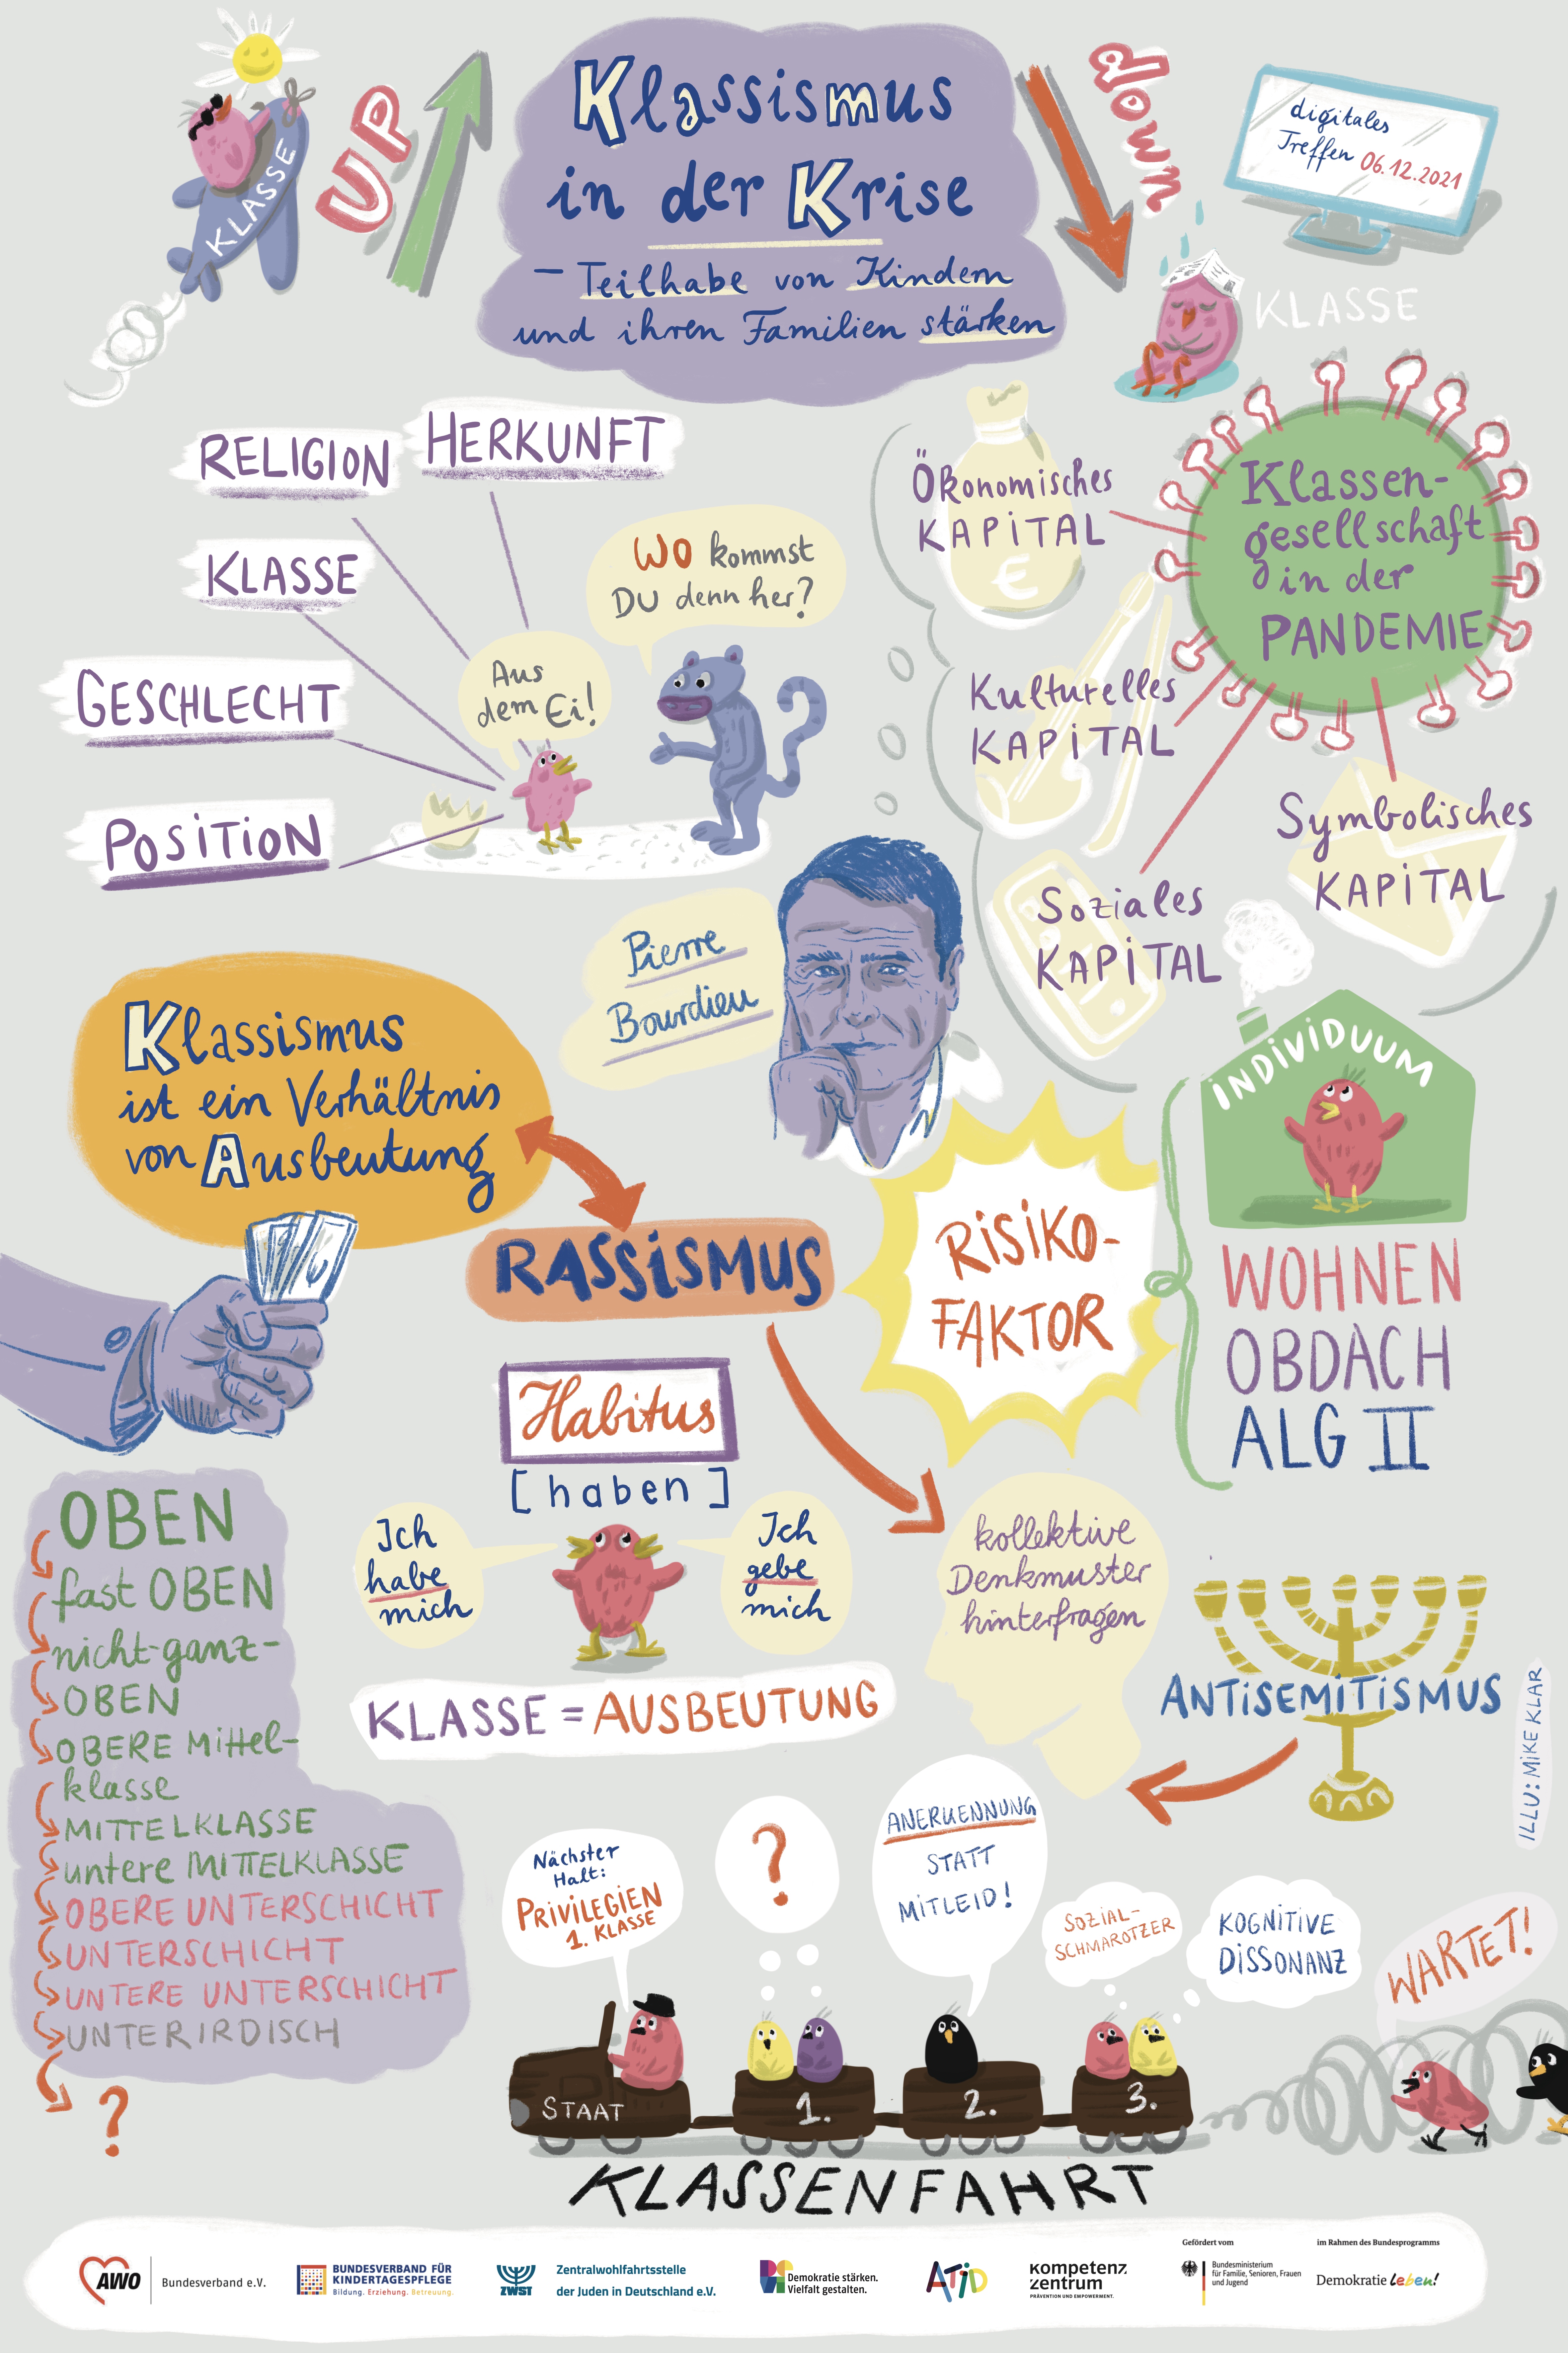 KLASSE
UP
Klassismus
in der Krise
– Teilhabe von Kindern
und ihren Familien stärken
down
digitales
Treffen 06.12.2021
KLASSE
RELIGION
HERKUNFT
KLASSE
GESCHLECHT
POSITION
WO kommst
DU denn her?
Aus
dem Ei!
Ökonomisches
KAPITAL
€
Kulturelles
KAPITAL
Soziales
KAPITAL
Symbolisches
KAPITAL
Klassen-
gesellschaft
in der
PANDEMIE
Pierre
Bourdieu
Klassismus
ist ein Verhältnis
von Ausbeutung
RASSISMUS
RISIKO-
FAKTOR
INDIVIDUUM
WOHNEN
OBDACH
ALG II
Habitus
[haben]
Ich
habe
mich
Ich
gebe
mich
KLASSE = AUSBEUTUNG
kollektive
Denkmuster
hinterfragen
ANTISEMITISMUS
ILLU: MIKE KLAR
OBEN
fast OBEN
nicht-ganz-
OBEN
OBERE Mittel-
klasse
MITTELKLASSE
untere MITTELKLASSE
OBERE UNTERSCHICHT
UNTERSCHICHT
UNTERE UNTERSCHICHT
UNTERIRDISCH
?
Nächster
Halt:
PRIVILEGIEN
1. KLASSE
?
ANERKENNUNG
STATT
MITLEID!
SOZIAL-
SCHMAROTZER
KOGNITIVE
DISSONANZ
WARTET!
STAAT
1.
2.
3.
KLASSENFAHRT
AWO
Bundesverband e.V.
BUNDESVERBAND FÜR
KINDERTAGESPFLEGE
Bildung. Erziehung. Betreuung.
ZWST
Zentralwohlfahrtsstelle
der Juden in Deutschland e.V.
Demokratie stärken.
Vielfalt gestalten.
ATiD
kompetenz
zentrum
PRÄVENTION UND EMPOWERMENT.
Gefördert vom
Bundesministerium
für Familie, Senioren, Frauen
und Jugend
im Rahmen des Bundesprogramms
Demokratie leben!